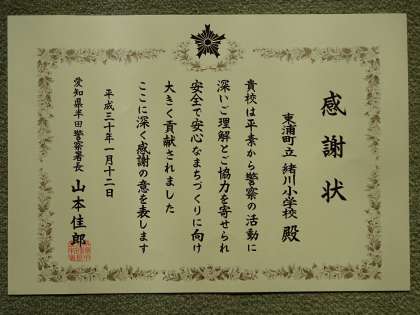 感謝状
東浦町立 緒川小学校 殿
貴校は平素から警察の活動に
深いご理解とご協力を寄せられ
安全で安心なまちづくりに向け
大きく貢献されました
ここに深く感謝の意を表します
平成三十年一月十二日
愛知県半田警察署長 山本佳郎